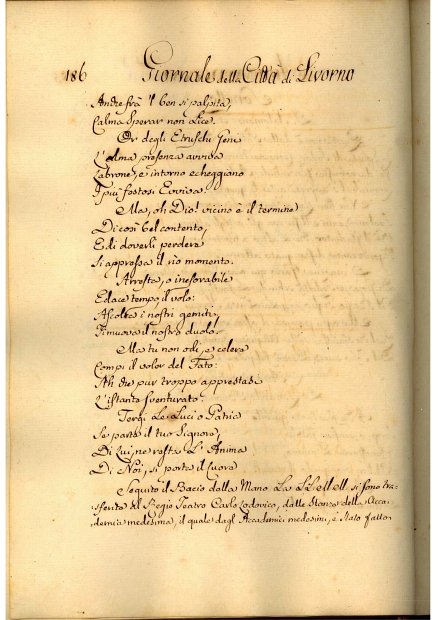 186 Giornale della Città di Livorno
Andre frà 'l ben si palpita,
Calma Sperar non Lice.
Or degli Etruschi Geni
L'alma presenza avviva
Labrone, e intorno echeggiano
I più festosi Evviva.
Ma, oh Dio! vicino è il termine
Di così bel contento,
E di doverli perdere
Si appressa il rio momento.
Arresta, o inesorabile
Edace tempo il volo:
Ascolta i nostri gemiti,
Ti muova il nostro duolo.
Ma tu non odi, e celere
Compi il voler del Fato:
Ah che pur troppo appressasi
L'istante sventurato.
Tergi Le Luci o Patria
Se parte il tuo Signore,
Di Lui, ne resta L'Anima
Di Noi, si porta il Cuore
Seguito il Bacio della Mano La LL. si sono tra-
sferite al Regio Teatro Carlo Lodovico, dalle Stanze della Acca-
demia medesima, il quale dagl' Accademici medesimi, è stato fatto